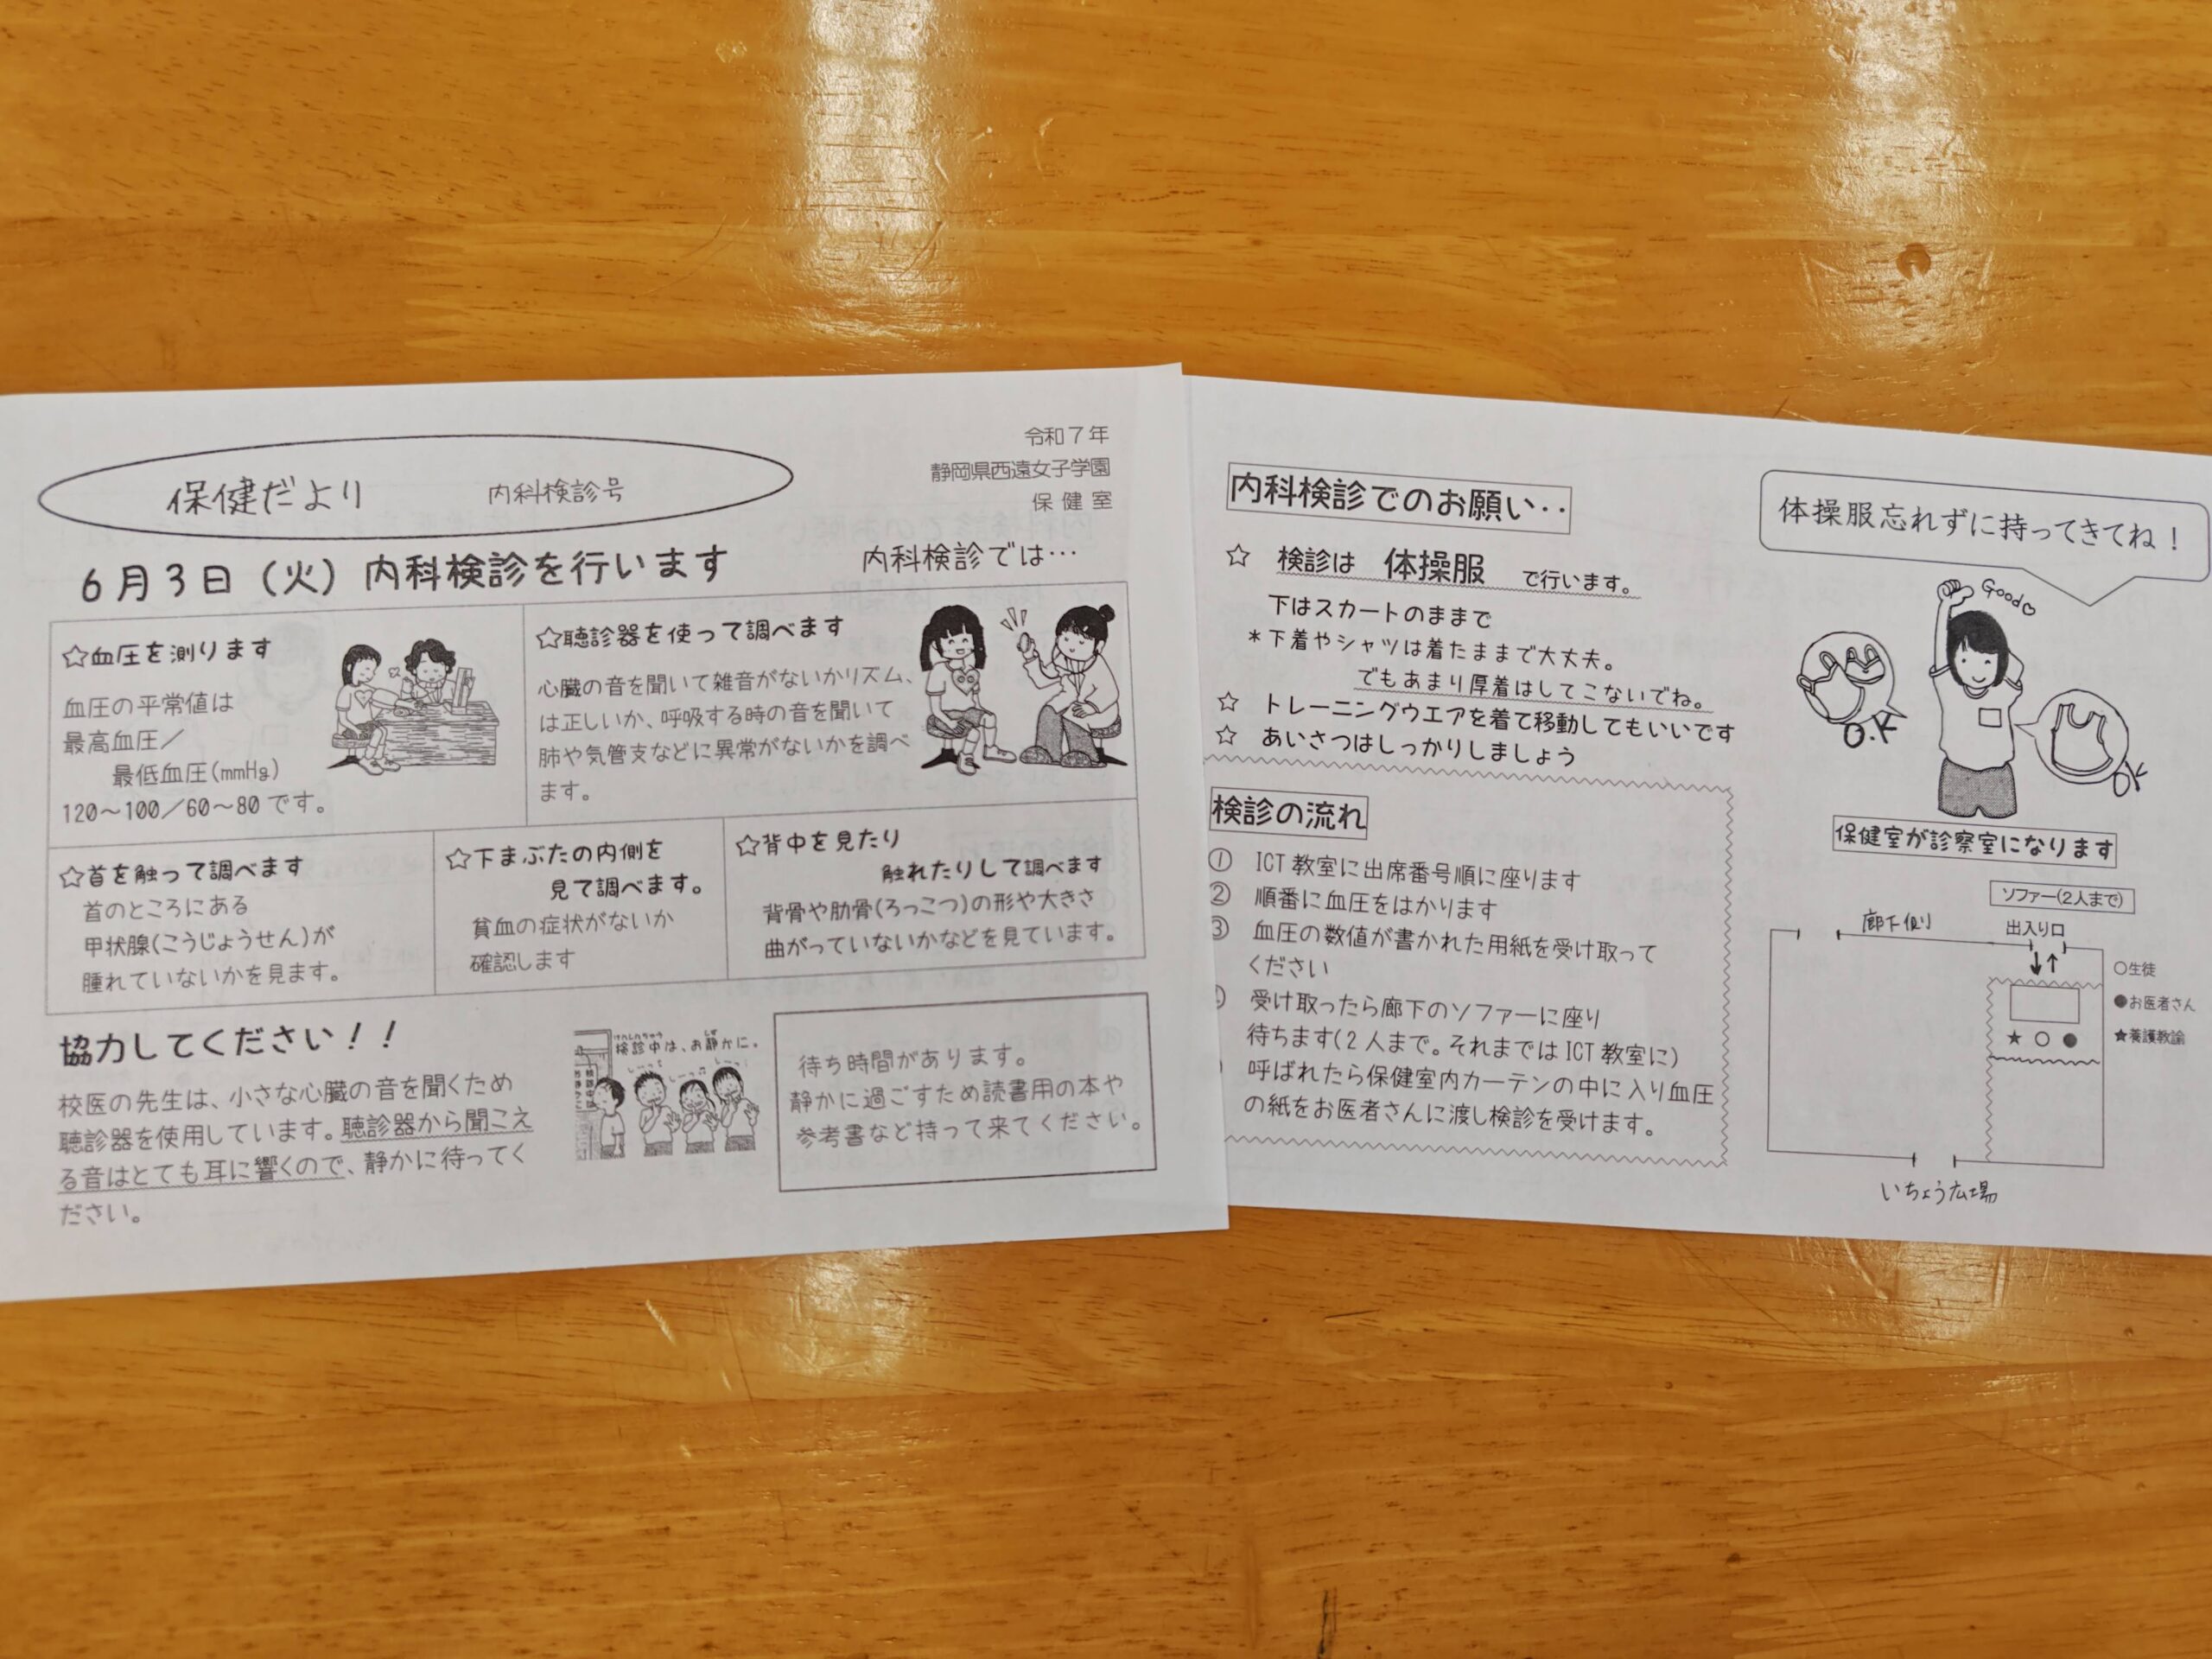 保健だより 内科検診号
令和７年
静岡県西遠女子学園
保 健 室
6月3日（火）内科検診を行います
内科検診では…
☆血圧を測ります
血圧の平常値は
最高血圧／
最低血圧(mmHg)
120～100／60～80 です。
☆聴診器を使って調べます
心臓の音を聞いて雑音がないかリズム、
は正しいか、呼吸する時の音を聞いて
肺や気管支などに異常がないかを調べ
ます。
☆首を触って調べます
首のところにある
甲状腺(こうじょうせん)が
腫れていないかを見ます。
☆下まぶたの内側を
見て調べます。
貧血の症状がないか
確認します
☆背中を見たり
触れたりして調べます
背骨や肋骨(ろっこつ)の形や大きさ
曲がっていないかなどを見ています。
協力してください！！
校医の先生は、小さな心臓の音を聞くため
聴診器を使用しています。聴診器から聞こえ
る音はとても耳に響くので、静かに待ってく
ださい。
検診中は、お静かに。
待ち時間があります。
静かに過ごすため読書用の本や
参考書など持って来てください。
内科検診でのお願い‥
☆ 検診は 体操服 で行います。
下はスカートのままで
＊下着やシャツは着たままで大丈夫。
でもあまり厚着はしてこないでね。
☆ トレーニングウエアを着て移動してもいいです
☆ あいさつはしっかりしましょう
検診の流れ
① ICT 教室に出席番号順に座ります
② 順番に血圧をはかります
③ 血圧の数値が書かれた用紙を受け取って
ください
受け取ったら廊下のソファーに座り
待ちます(2 人まで。それまでは ICT 教室に)
呼ばれたら保健室内カーテンの中に入り血圧
の紙をお医者さんに渡し検診を受けます。
体操服忘れずに持ってきてね！
Good♡
O.K
OK
保健室が診察室になります
ソファー(2人まで)
廊下側
出入り口
↓↑
○生徒
●お医者さん
★養護教諭
★ ○ ●
いちょう広場